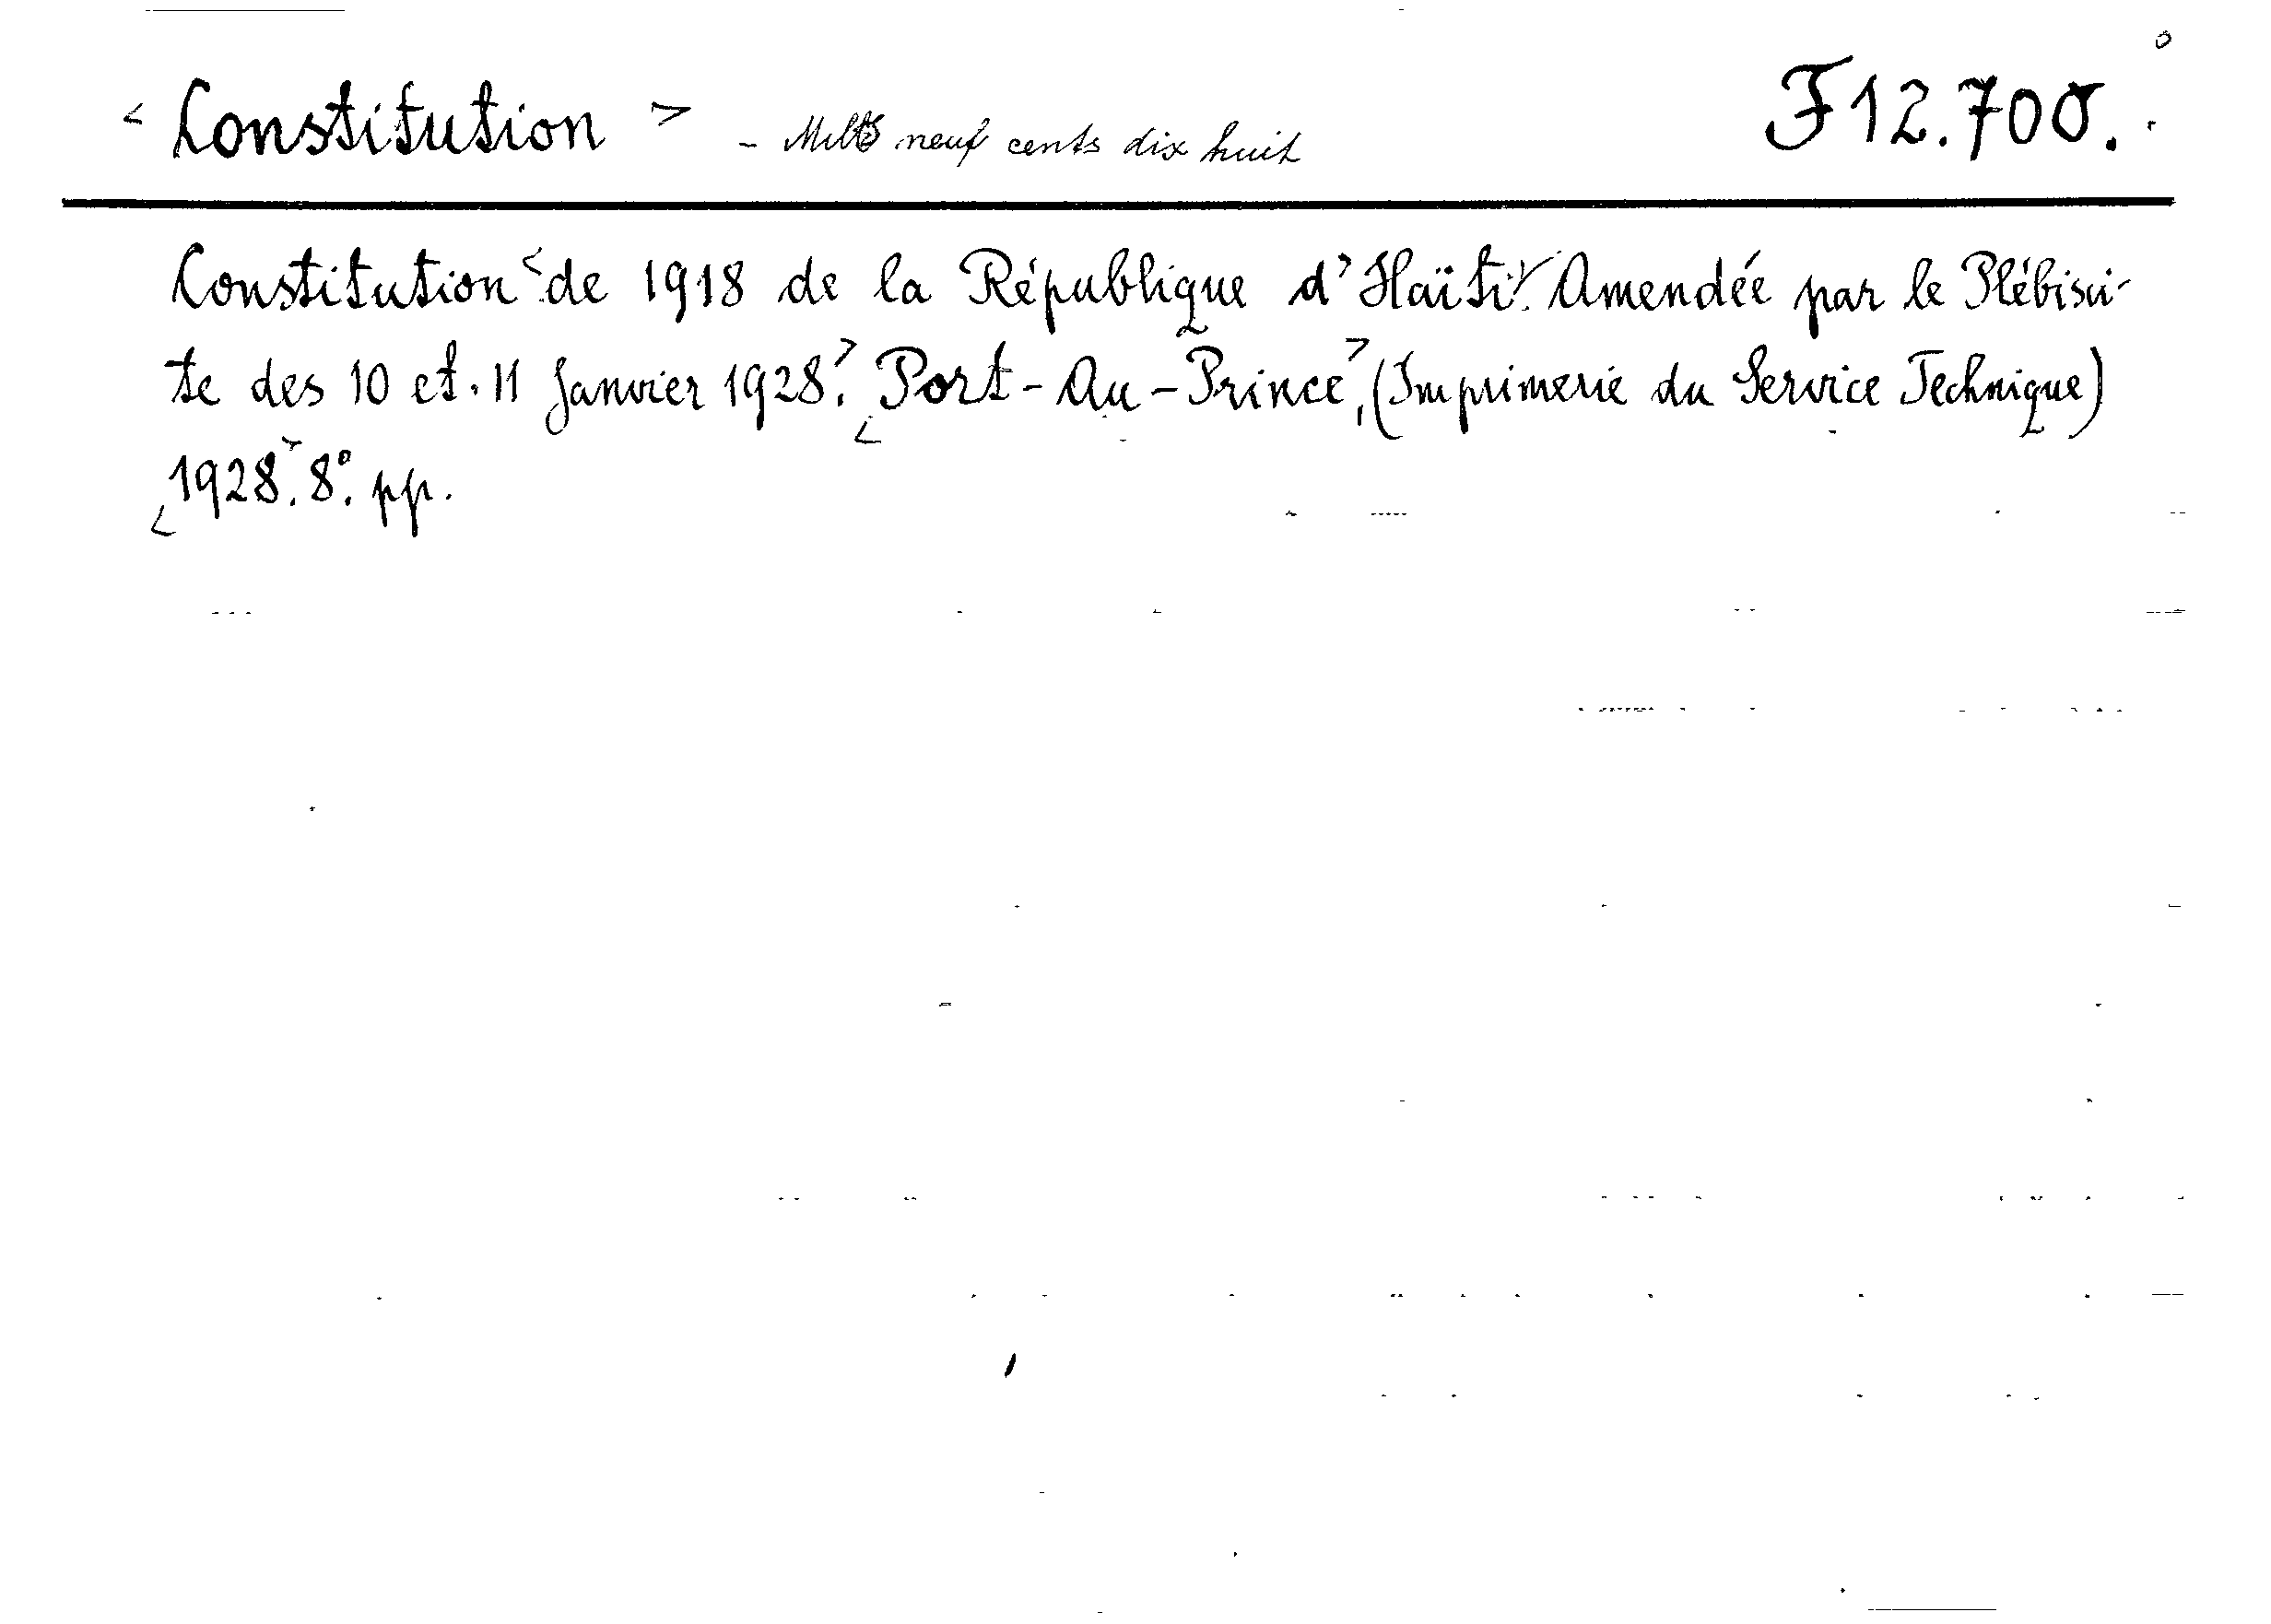 < Constitution > - Mille neuf cents dix huit F 12.700.
Constitution < de 1918 de la République d'Haïti >. Amendée par le Plébisci-
te des 10 et 11 Janvier 1928 >. < Port-Au-Prince >, (Imprimerie du Service Technique)
< 1928 >. 8°. pp.